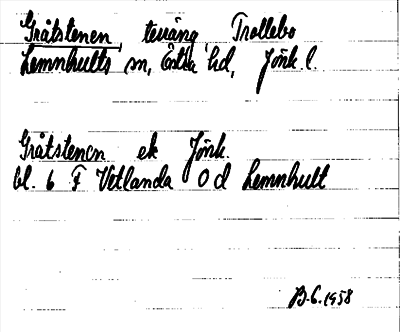 Gråtstenen, terräng, Trollebo
Lemnhults sn, Östra hd, Jönk. l.
Gråtstenen ek Jönk.
bl. 6 F Vetlanda 0 d Lemnhult
B.G. 1958